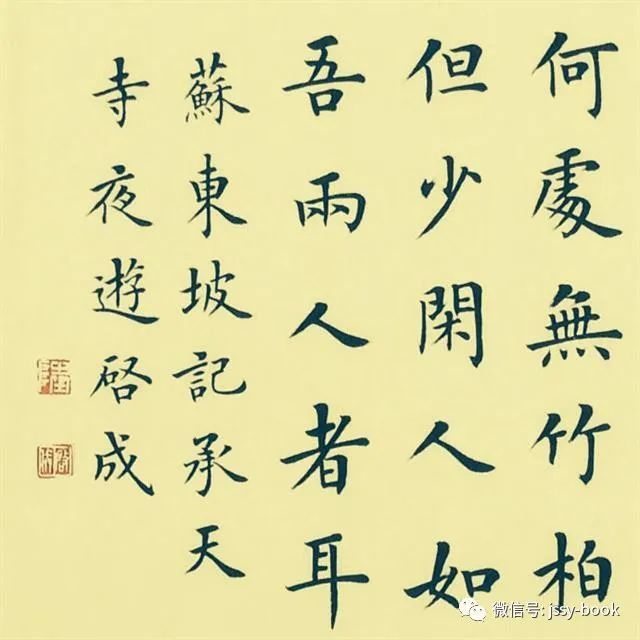 何處無竹柏
但少閑人如
吾兩人者耳
蘇東坡記承天
寺夜遊啓成
微信号: jssy-book